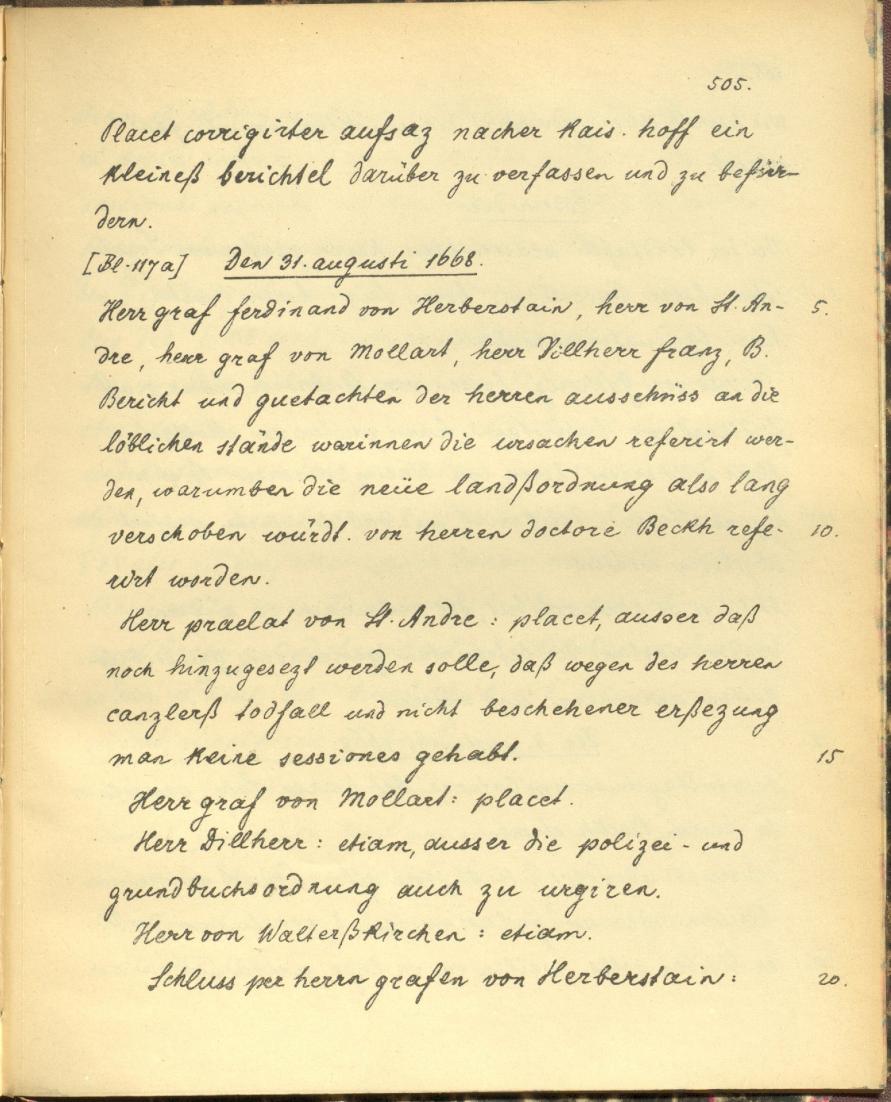 505.
Placet corrigirter aufsaz nacher kais. hoff ein
kleineß berichtel darüber zu verfassen und zu befür-
dern.
[Bl. 117a] Den 31. augusti 1668.
Herr graf ferdinand von Herberstain, herr von St. An- 5.
dre, herr graf von Mollart, herr Dillherr franz, B.
Bericht und guetachten der herren ausschüss an die
löblichen stände warinnen die ursachen referirt wer-
den, warumben die neüe landßordnung also lang
verschoben würdt. von herren doctore Beckh refe- 10.
rirt worden.
Herr praelat von St. Andre: placet, ausser daß
noch hinzugesezt werden solle, daß wegen des herren
canzlerß todfall und nicht beschehener erßezung
man keine sessiones gehabt. 15
Herr graf von Mollart: placet.
Herr Dillherr: etiam, ausser die polizei- und
grundbuchsordnung auch zu urgiren.
Herr von Walterßkirchen: etiam.
Schluss per herrn grafen von Herberstain: 20.